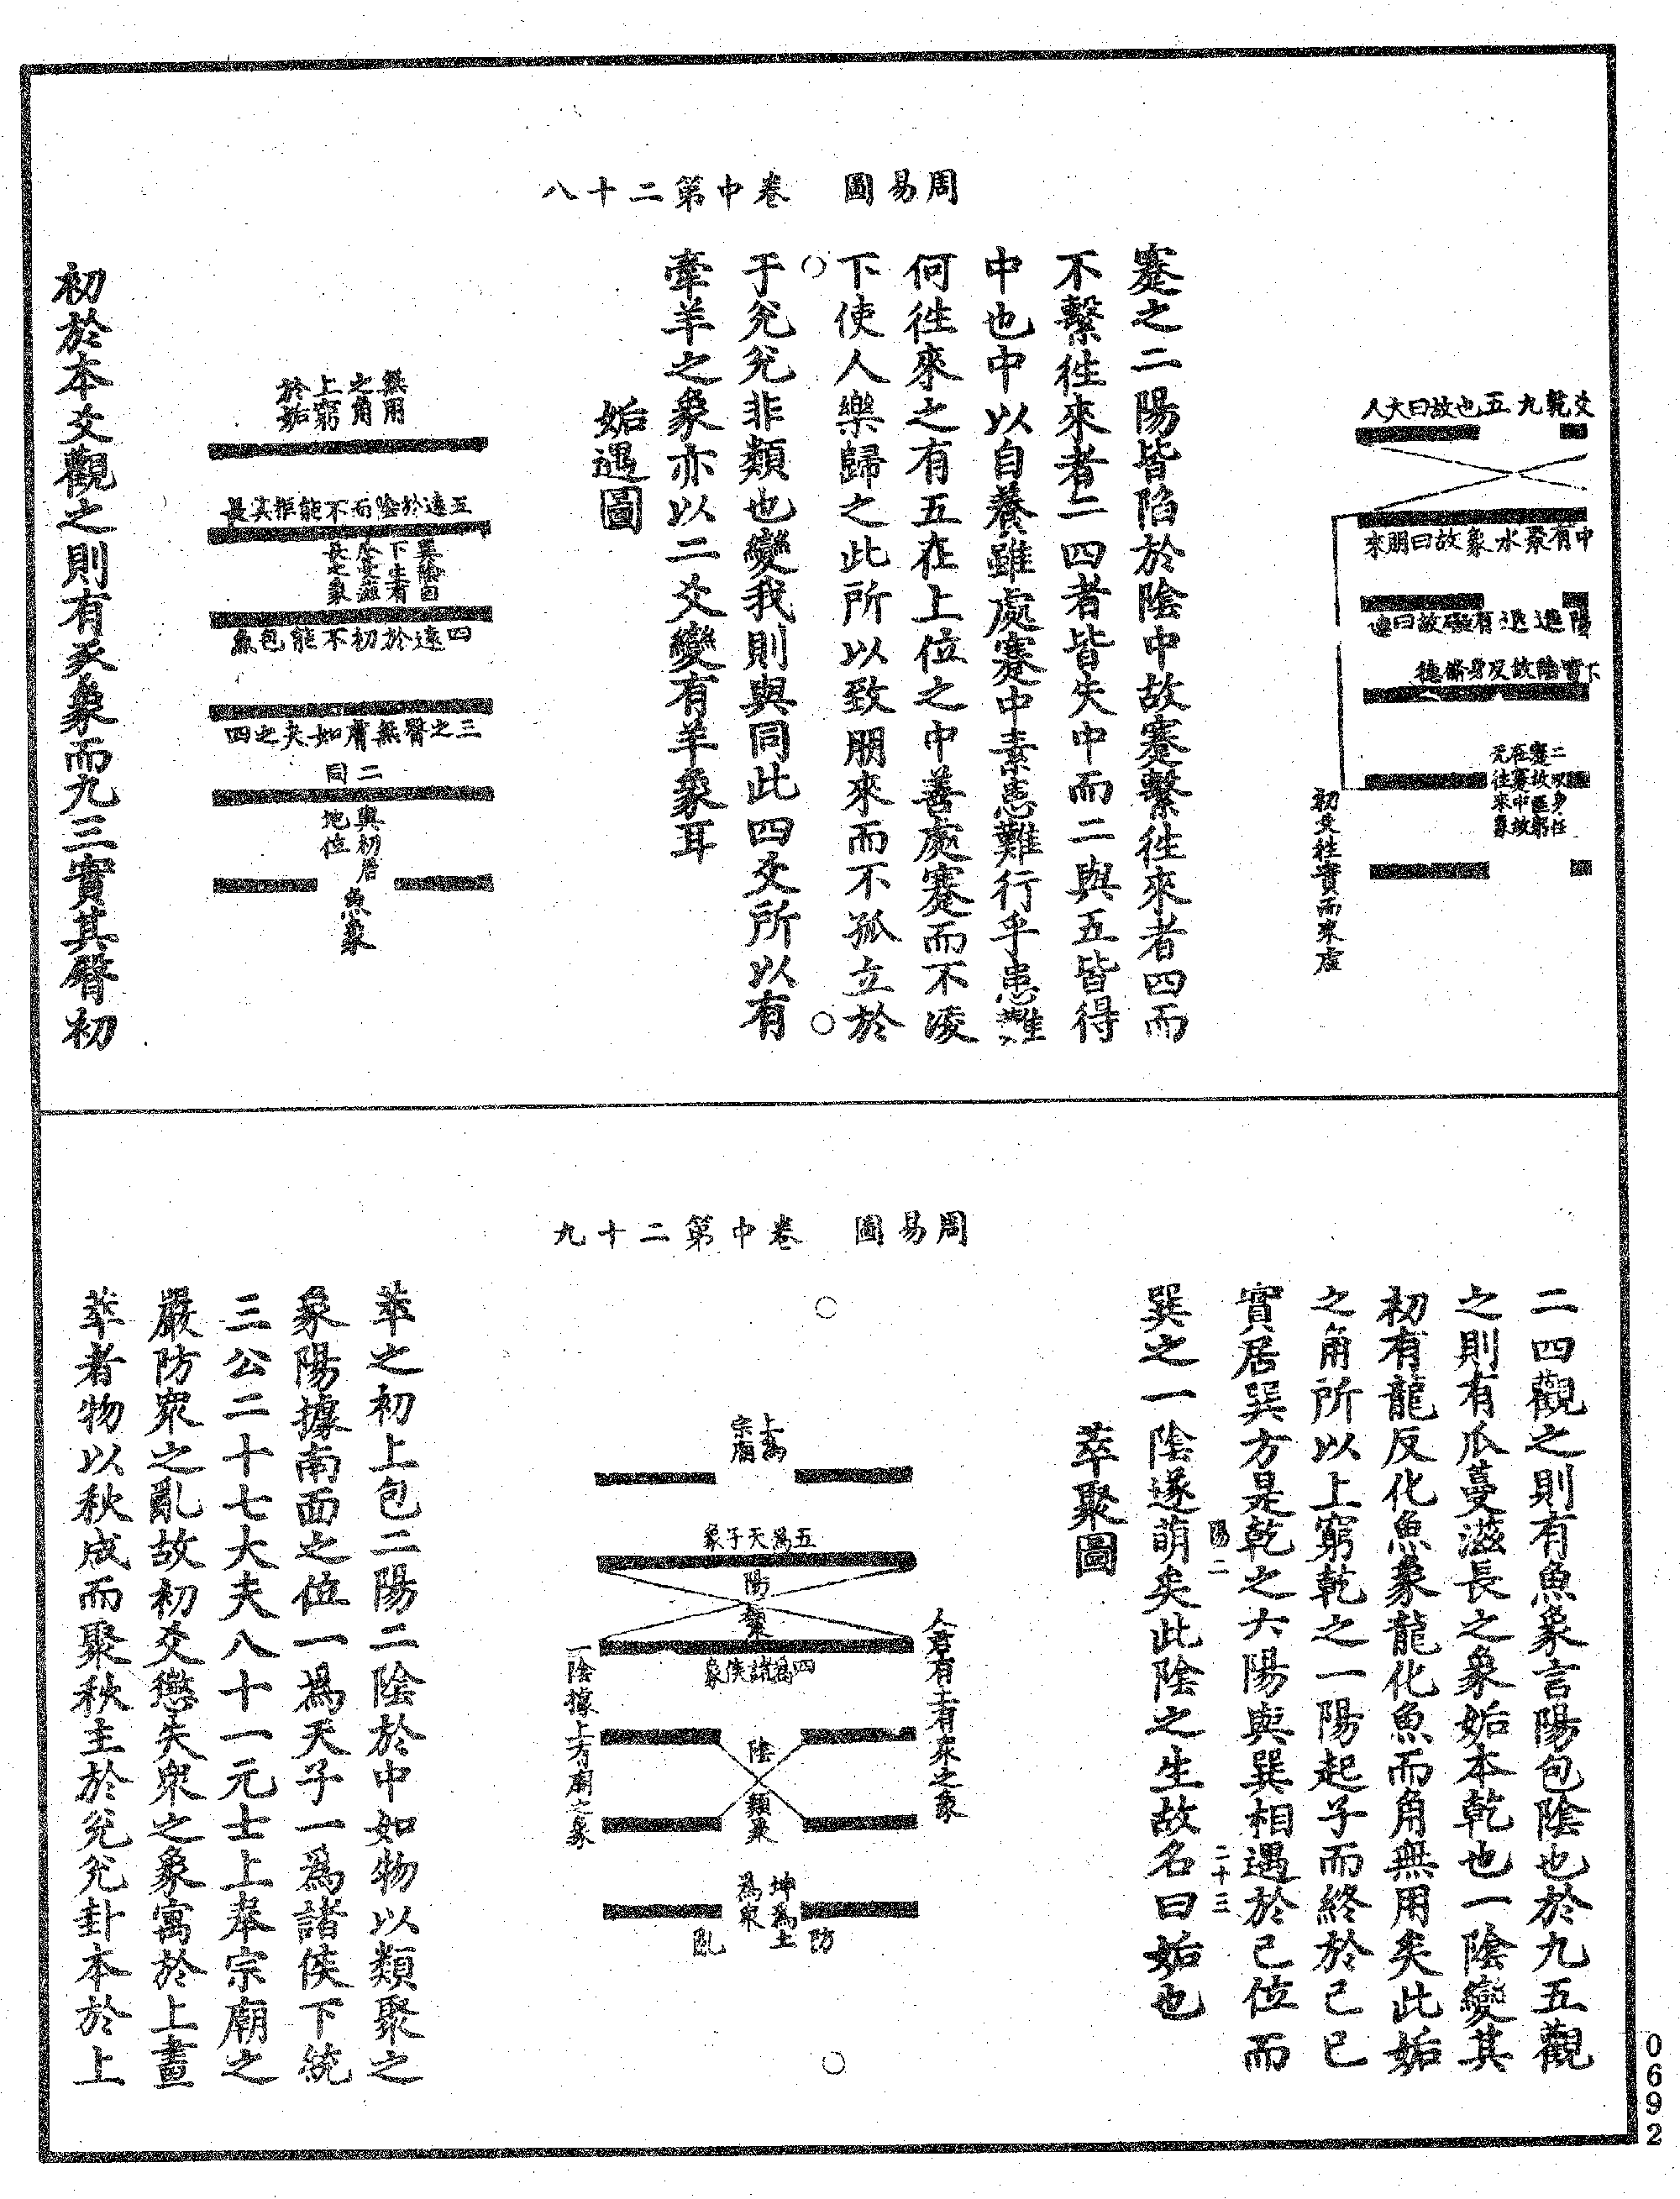 周易圖　卷中第二十八
爻乾九五也故曰大人
中有乘水象故曰朋來
陽進退有礙故曰連
下皆陰故反身脩德
二以身任
蹇故匪躬
在蹇中故
无往來象
初爻往實而來虛
蹇之二陽皆陷於陰中故蹇繫往來者四而
不繫往來者二四者皆失中而二與五皆得
中也中以自養雖處蹇中素患難行乎患難
何往來之有五在上位之中善處蹇而不凌
下使人樂歸之此所以致朋來而不孤立於
于兌兌非類也變我則與同此四爻所以有
牽羊之象亦以二爻變有羊象耳
姤遇圖
無用
之角
上窮
於姤
五遠於陰而不能拒其長
巽陰自
下生者
四遠於初不能包魚
三之臀無膚如夬之四
二曰
與初居
地位
魚象
初於本爻觀之則有豕象而九三實其臀初
周易圖　卷中第二十九
二四觀之則有魚象言陽包陰也於九五觀
之則有瓜蔓滋長之象姤本乾也一陰變其
初有龍反化魚象龍化魚而角無用矣此姤
之角所以上窮乾之一陽起子而終於已已
實居巽方是乾之六陽與巽相遇於已位而
陽二　二十三
巽之一陰遂萌矣此陰之生故名曰姤也
萃聚圖
上為
宗廟
五為天子象
陽類聚
四為諸侯象
陰類聚
坤為土
為眾
防亂
人君有土有眾之象
一陰據上有廟之象
萃之初上包二陽二陰於中如物以類聚之
象陽據南面之位一為天子一為諸侯下統
三公二十七大夫八十一元士上奉宗廟之
嚴防眾之亂故初爻懲失眾之象寓於上畫
萃者物以秋成而聚秋主於兌兌卦本於上
0692